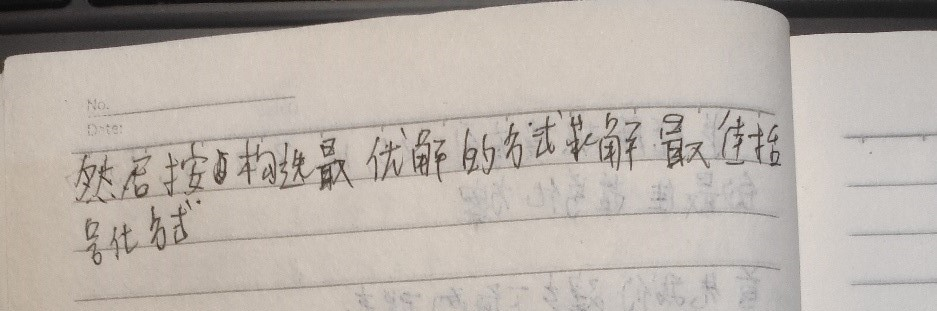 No.
Date:
然后按构造最优解的方式求解最佳括
号化方式